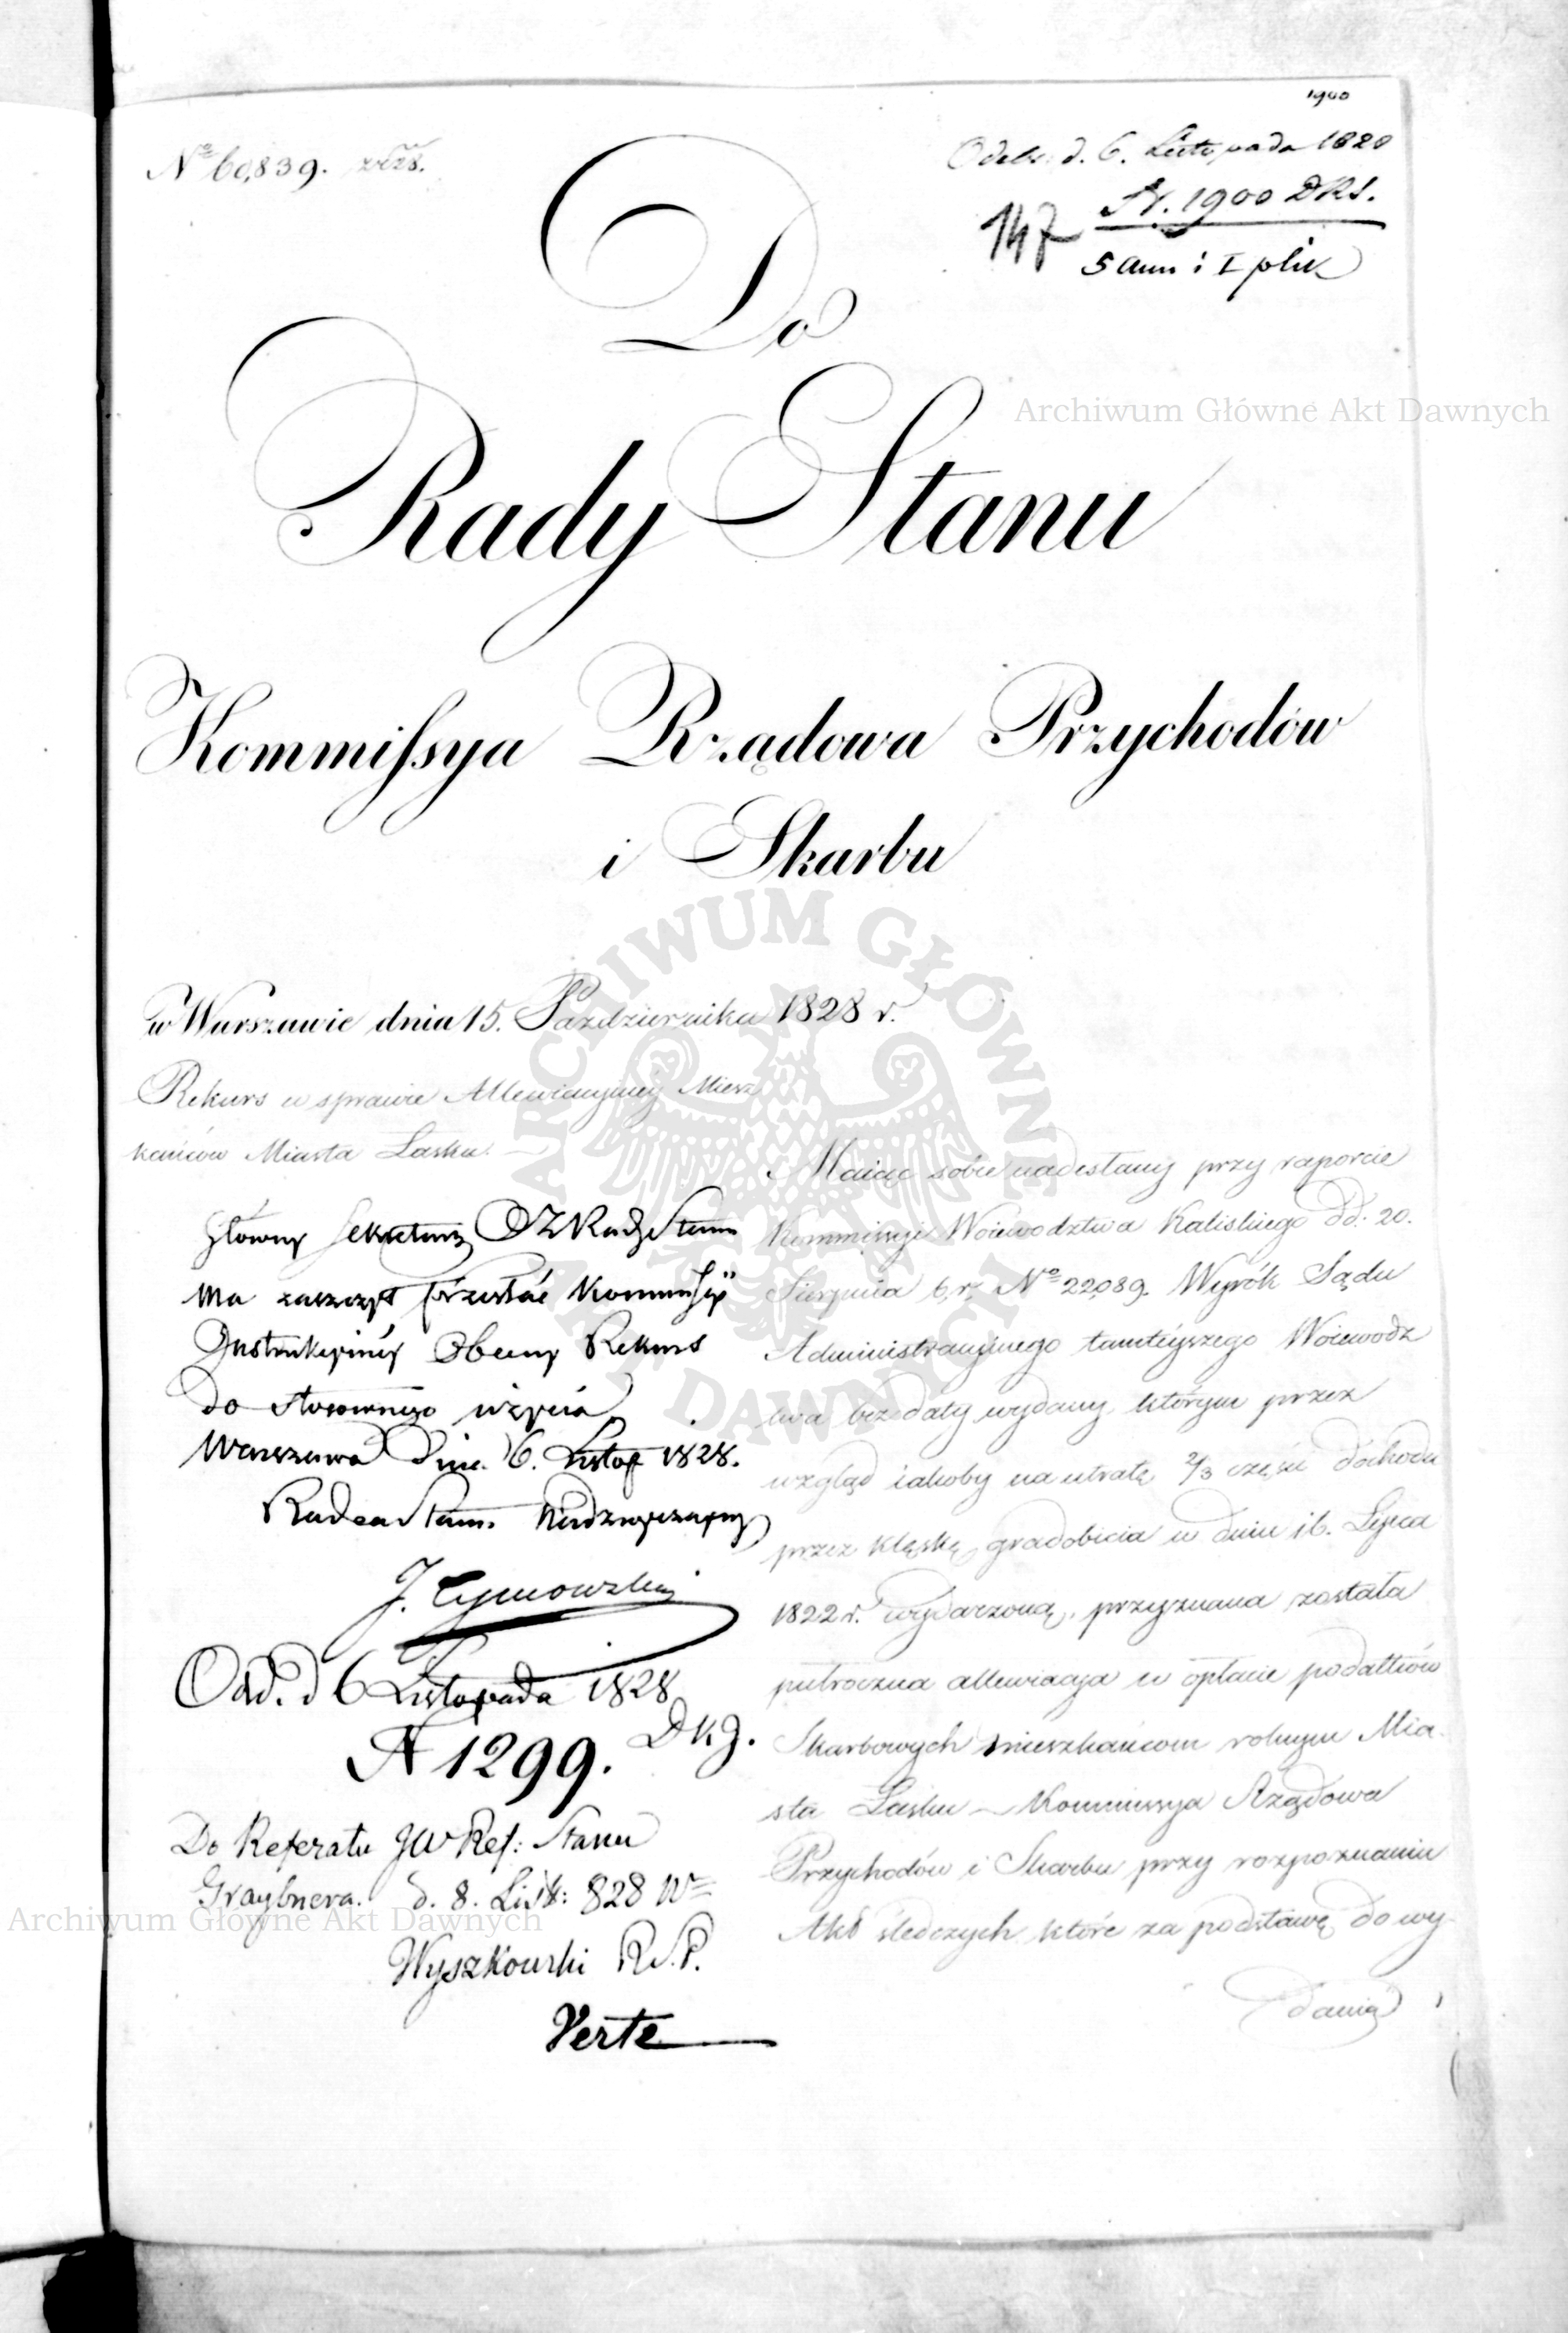 1900
Nº 60,839.
Odebr. d. 6. Listopada 1828
N. 1900 DRS.
147
5 ann i I plik
Do
Rady Stanu
Archiwum Główne Akt Dawnych
Kommissya Rządowa Przychodów
i Skarbu
w Warszawie dnia 15. Października 1828 r.
Rekurs w sprawie Allewiacyjnéy Miesz
kańców Miasta Łasku.
Główny Sekretarz Rady Stanu
ma zaszczyt przesłać Kommissyi
Instrukcyinéy Obecny Rekurs
do stosownego użycia
Warszawa Dnia 6. Listop 1828.
Radca Stanu Nadzwyczajny
J. Tymowski
Odd. d 6 Listopada 1828
N 1299. DKJ.
Do Referatu JW Ref: Stanu
Graybnera. d. 8. List: 828
Wyszkowski R.S.P.
Verte
Maiąc sobie nadesłany przy raporcie
Kommissyi Woiewodztwa Kaliskiego dd. 20.
Sierpnia b, r, Nº 22,089. Wyrók Sądu
Administracyjnego tamtéyszego Woiewodz
twa bez daty wydany, którym przez
wzgląd iakoby na utratę 2/3 części dochodu
przez klęskę gradobicia w dniu 16. Lipca
1822 r. wydarzoną, przyznana została
półroczna allewiacya w opłacie podatków
Skarbowych mieszkańcom rolnym Mia-
sta Łasku – Kommissya Rządowa
Przychodów i Skarbu przy rozpoznaniu
Akt śledczych które za podstawę do wy-
dania
ARCHIWUM GŁÓWNE
AKT DAWNYCH
Archiwum Główne Akt Dawnych